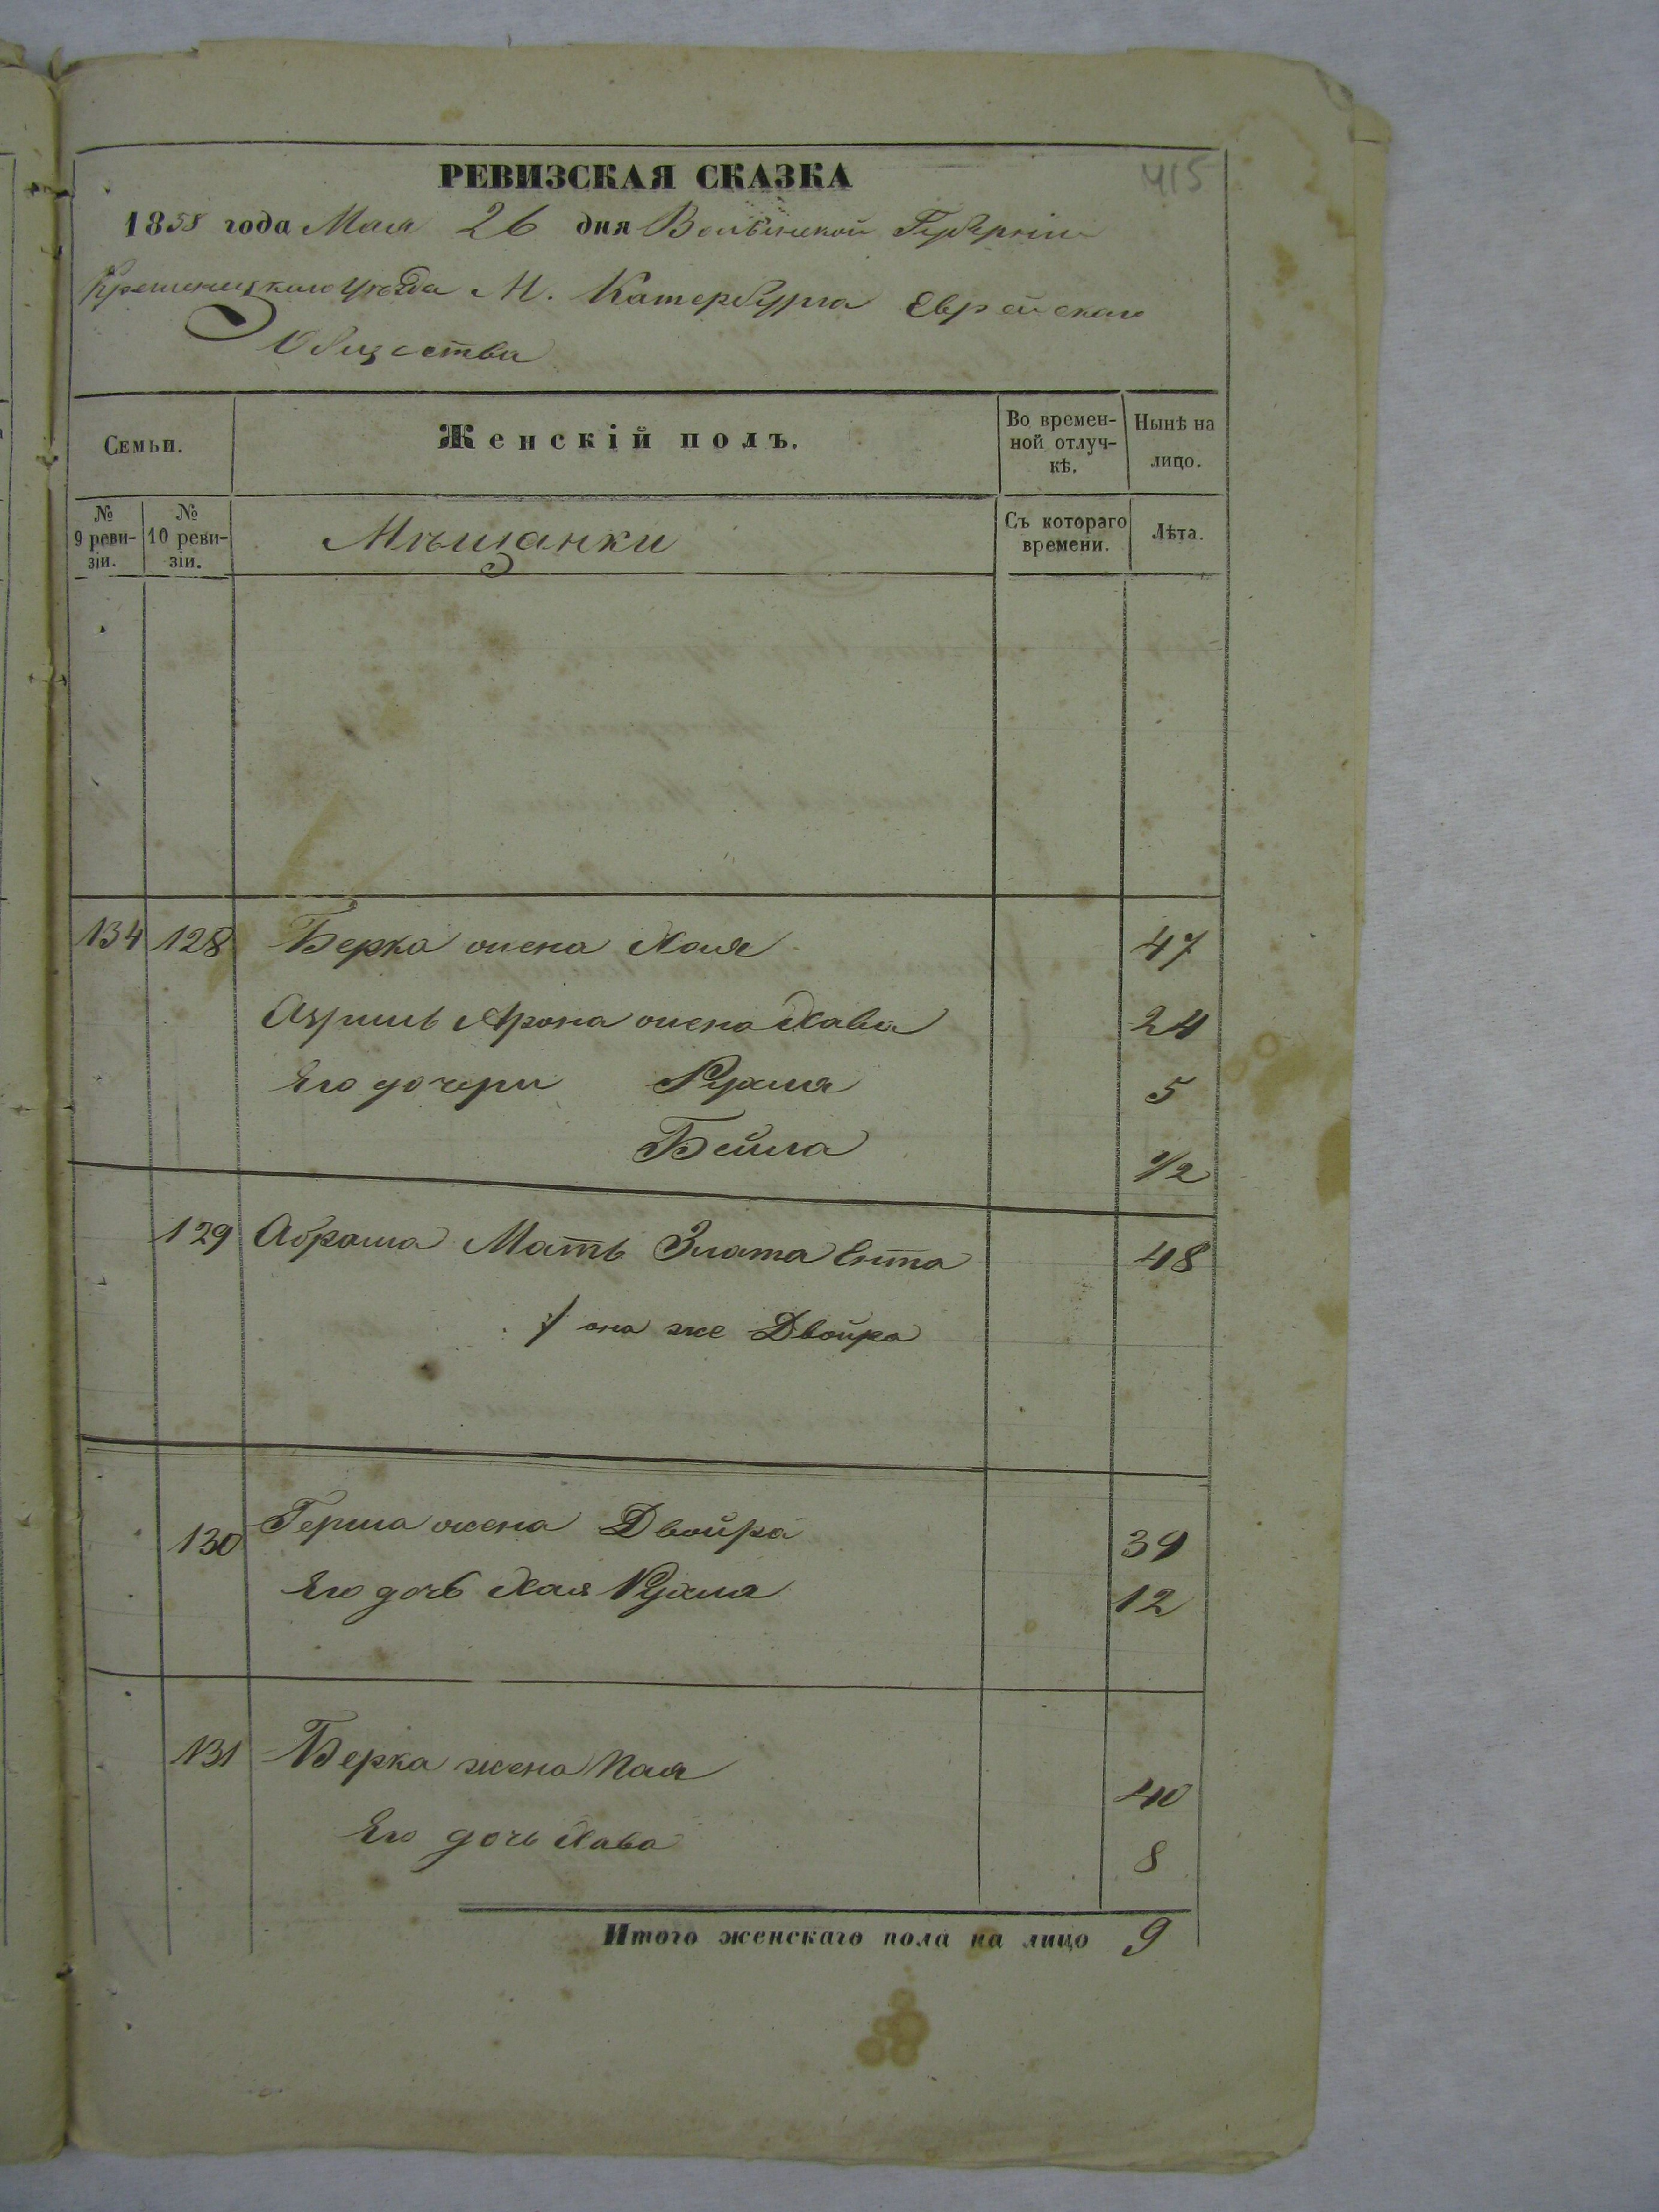 РЕВИЗСКАЯ СКАЗКА
415
1858 года Мая 26 дня Волынской Губернiи
Кременецкаго Уѣзда М. Катербурга Еврейскаго
Общества
Семьи.
Женскiй полъ.
Во времен-
ной отлуч-
кѣ.
Нынѣ на
лицо.
№
9 реви-
зiи.
№
10 реви-
зiи.
Мѣщанки
Съ котораго
времени.
Лѣта.
134 128 Берка жена Хая 47
Арона жена Хава 24
Его дочери Рухля 5
Бейла 1/2
129 Абрама Мать Злата Ента 48
/ она же Двойра
130 Герша жена Двойра 39
Его дочь Хая Рухля 12
131 Берка жена 40
Его дочь Хава 8
Итого женскаго пола на лицо 9